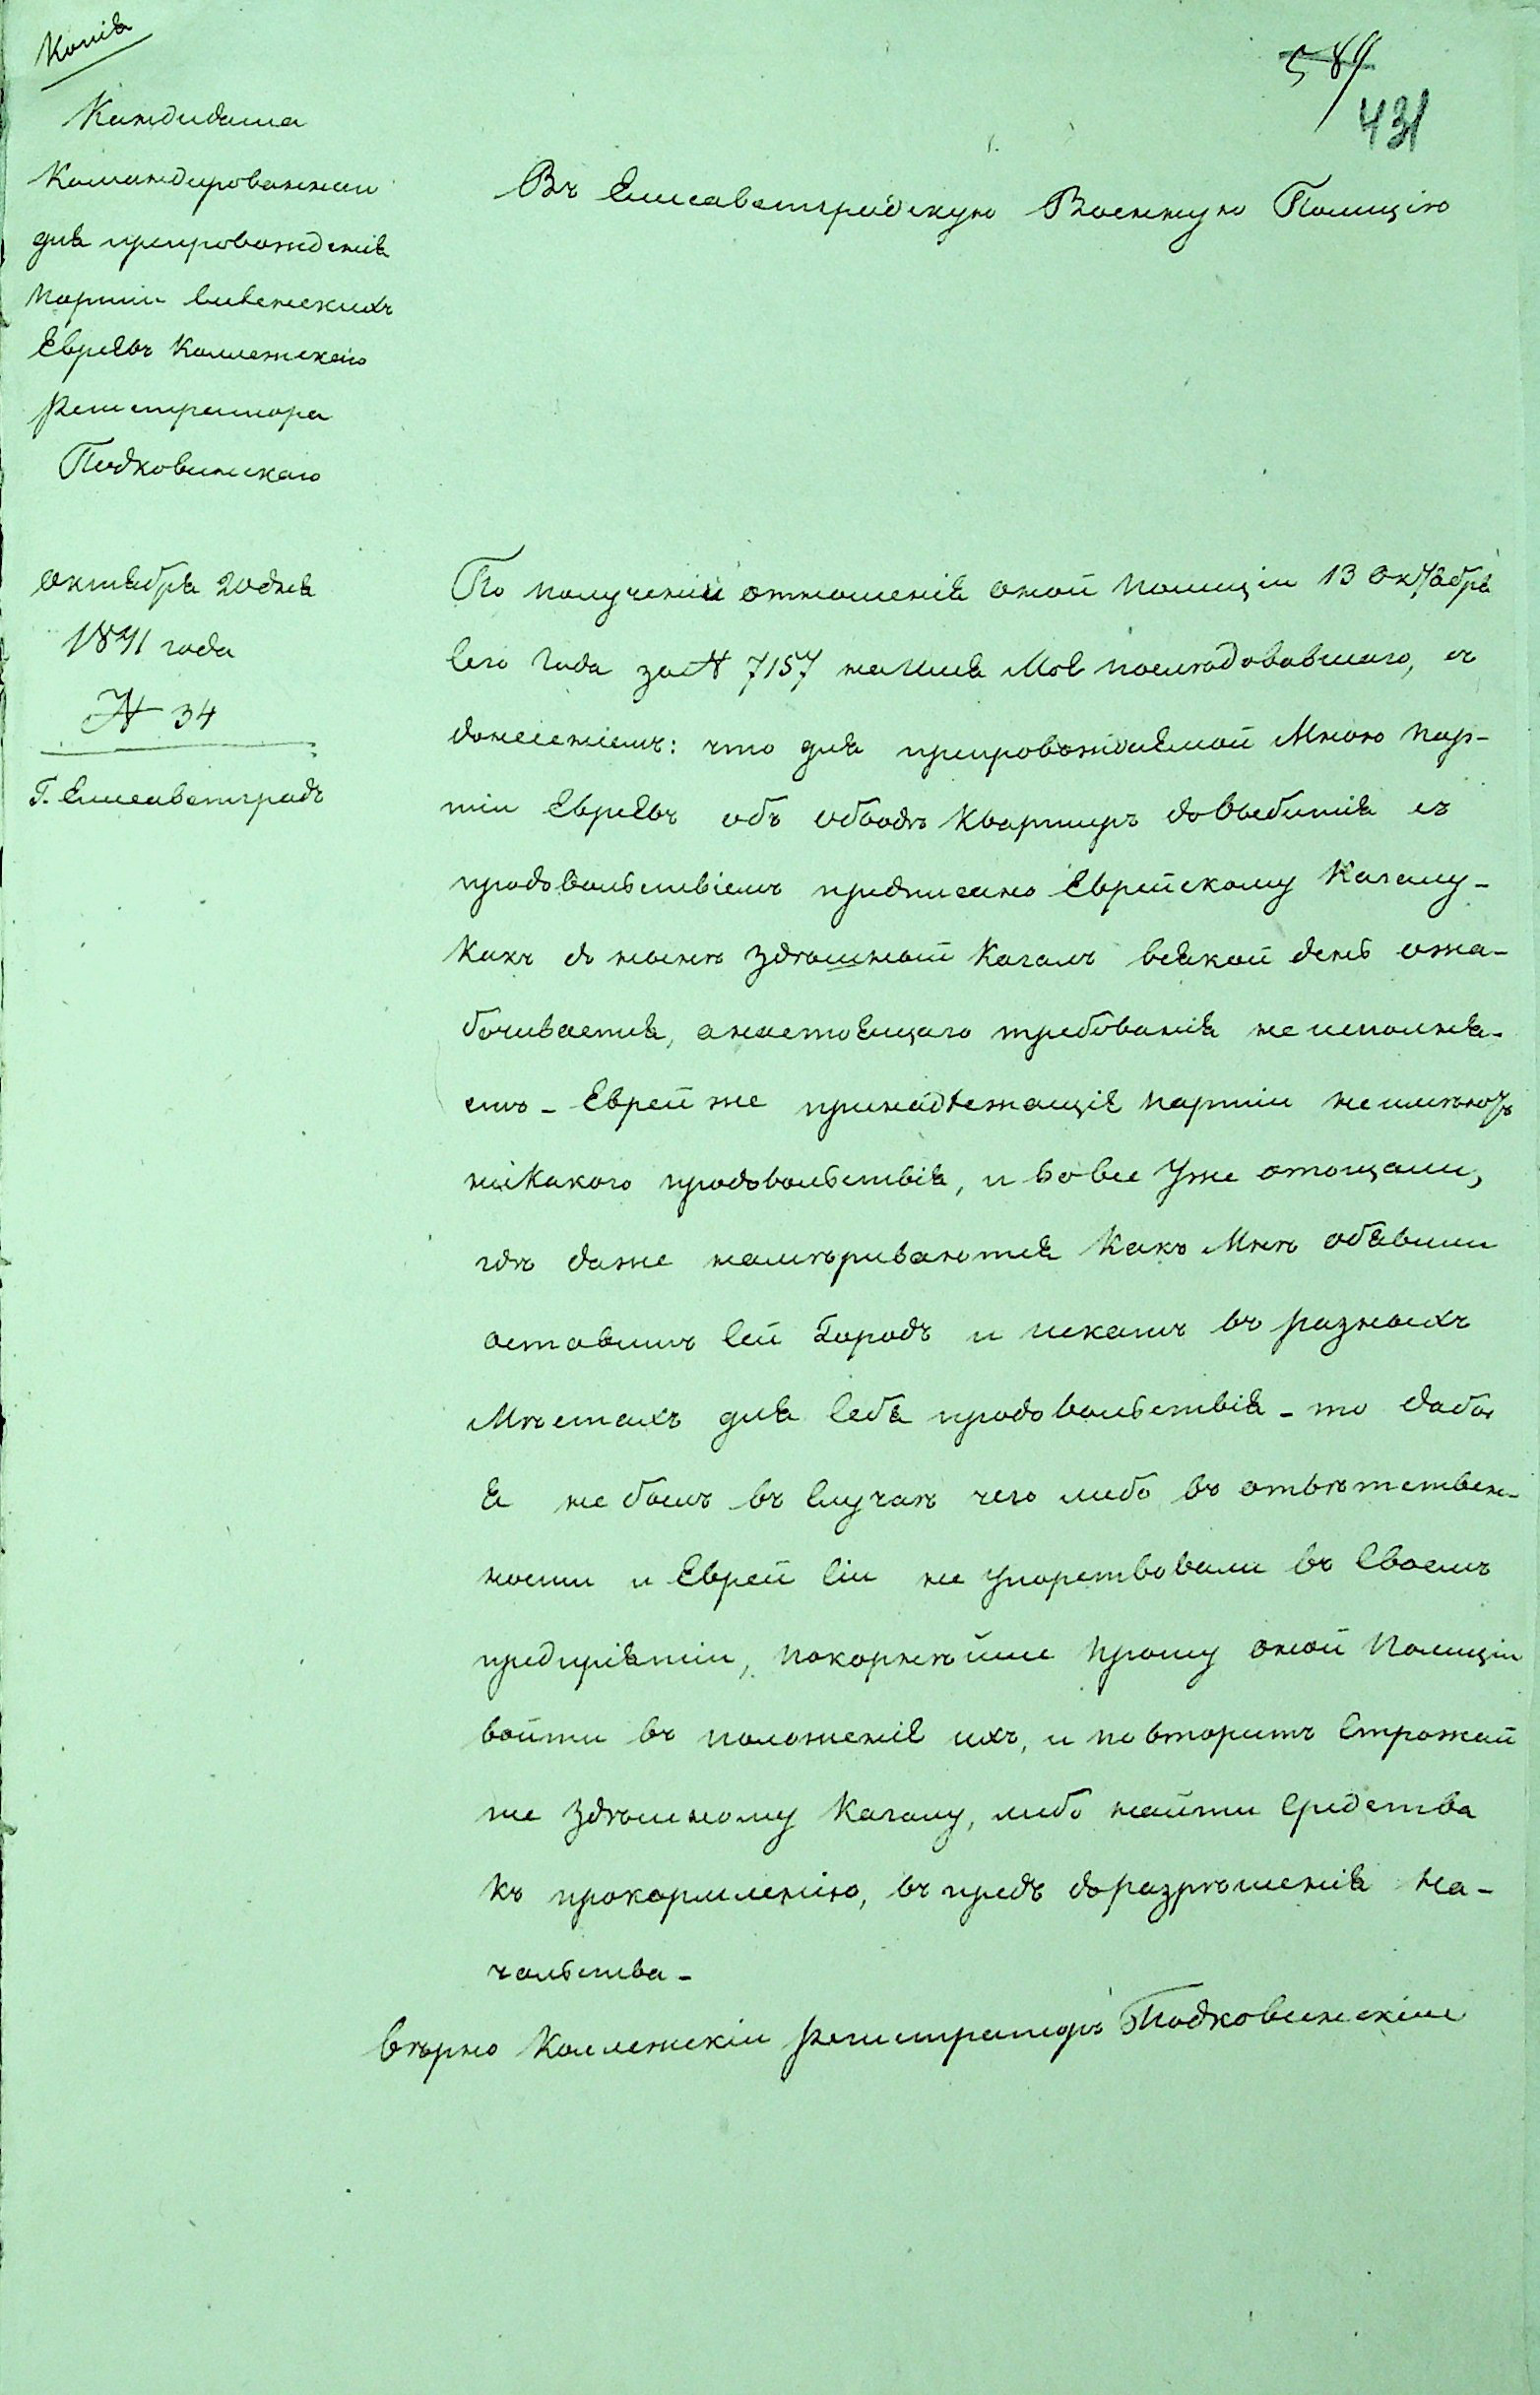 Копія
589
431
Кандидата
Командированнаго
для препровожденія
партіи виленскихъ
Евреевъ Коллежскаго
Регистратора
Подковинскаго
Октября 20 дня
1841 года
№ 34
Г. Елисаветградъ
Въ Елисаветградскую Военную Полицію
По полученіи отношенія оной Полиціи 13 Октября
сего Года за № 7157 на имя Моё последовавшаго, съ
донесеніемъ: что для препровождаемой Мною пар-
тіи Евреевъ объ отводѣ Квартиръ до выбытія съ
продовольствіемъ предписано Еврейскому Кагалу-
Какъ до нынѣ здѣшный Кагалъ всякой день
а настоящаго требованія не исполня-
етъ - Евреи же принадлежащіе партіи не имѣютъ
ніКакого продовольствія, и вовсе уже отощали,
гдѣ даже намѣриваются Какъ Мнѣ объявили
оставить Сей Городъ и искать въ разныхъ
Мѣстахъ для Себя продовольствія - то дабы
Я не былъ въ Случаѣ чего либо въ отвѣтствен-
ности и Евреи Сіи не упорствовали въ Своемъ
предпріятіи, покорнѣйше прошу оной Полиціи
войти въ положеніе ихъ, и повторить Строжай
ше здѣшному Кагалу, либо найти Средства
къ прокормленію, въ предъ до разрѣшенія На-
чальства -
Вѣрно Коллежскій Регистраторъ Подковинскій